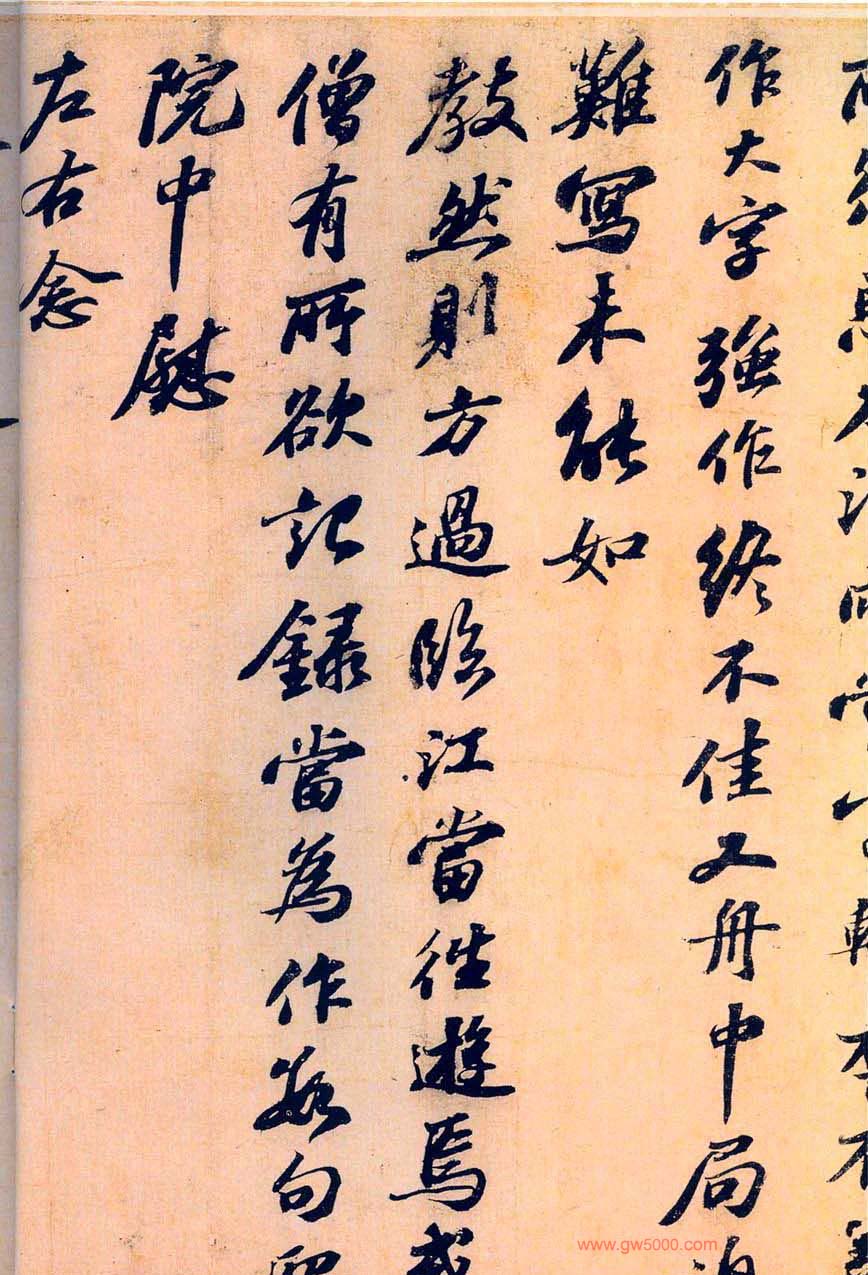 作大字強作終不佳又舟中局
難寫未能如
教然則方過臨江當往遊焉或
僧有所欲記錄當為作數句
院中慰
左右念
www.gw5000.com